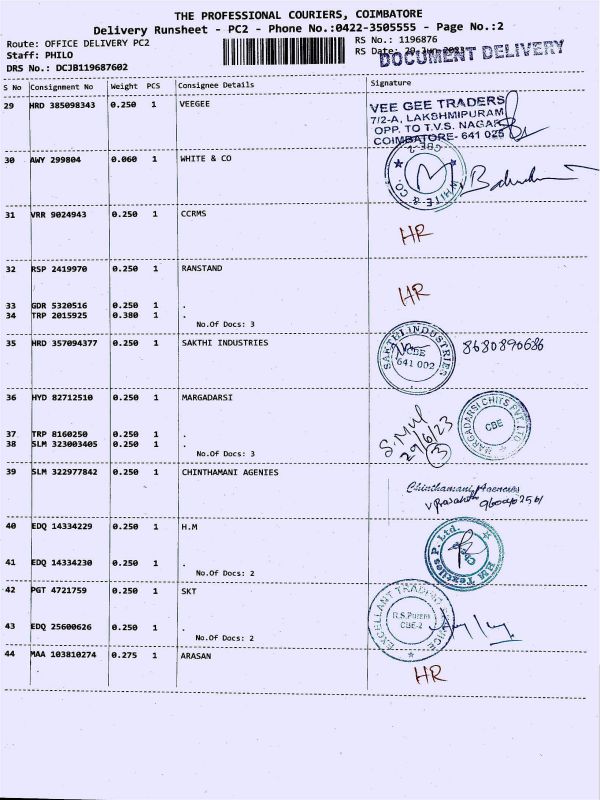 THE PROFESSIONAL COURIERS, COIMBATORE
Delivery Runsheet - PC2 - Phone No.:0422-3505555 - Page No.:2
Route: OFFICE DELIVERY PC2
RS No.: 1196876
Staff: PHILO
RS Date: 29-Jun-2023
DOCUMENT DELIVERY
DRS No.: DCJB119687602
S No Consignment No Weight PCS Consignee Details Signature
29 HRD 385098343 0.250 1 VEEGEE
VEE GEE TRADERS
7/2-A, LAKSHMIPURAM
OPP. TO T.V.S. NAGAR
COIMBATORE- 641 025
30 AWY 299804 0.060 1 WHITE & CO
WHITE & CO.
CBE-2
31 VRR 9024943 0.250 1 CCRMS
HR
32 RSP 2419970 0.250 1 RANSTAND
HR
33 GDR 5320516 0.250 1 .
34 TRP 2015925 0.380 1 .
No.Of Docs: 3
35 HRD 357094377 0.250 1 SAKTHI INDUSTRIES
SAKTHI INDUSTRIES
CBE
641 002
8680890686
36 HYD 82712510 0.250 1 MARGADARSI
MARGADARSI CHITS PVT. LTD
CBE
29/6/23
3
37 TRP 8160250 0.250 1 .
38 SLM 323003405 0.250 1 .
No.Of Docs: 3
39 SLM 322977842 0.250 1 CHINTHAMANI AGENIES
Chinthamani Agencies
40 EDQ 14334229 0.250 1 H.M
HM Textiles P. Ltd.
41 EDQ 14334230 0.250 1 .
No.Of Docs: 2
42 PGT 4721759 0.250 1 SKT
EXCELLANT TRADING SERVICE
R.S.Puram
CBE-2
43 EDQ 25600626 0.250 1 .
No.Of Docs: 2
44 MAA 103810274 0.275 1 ARASAN
HR